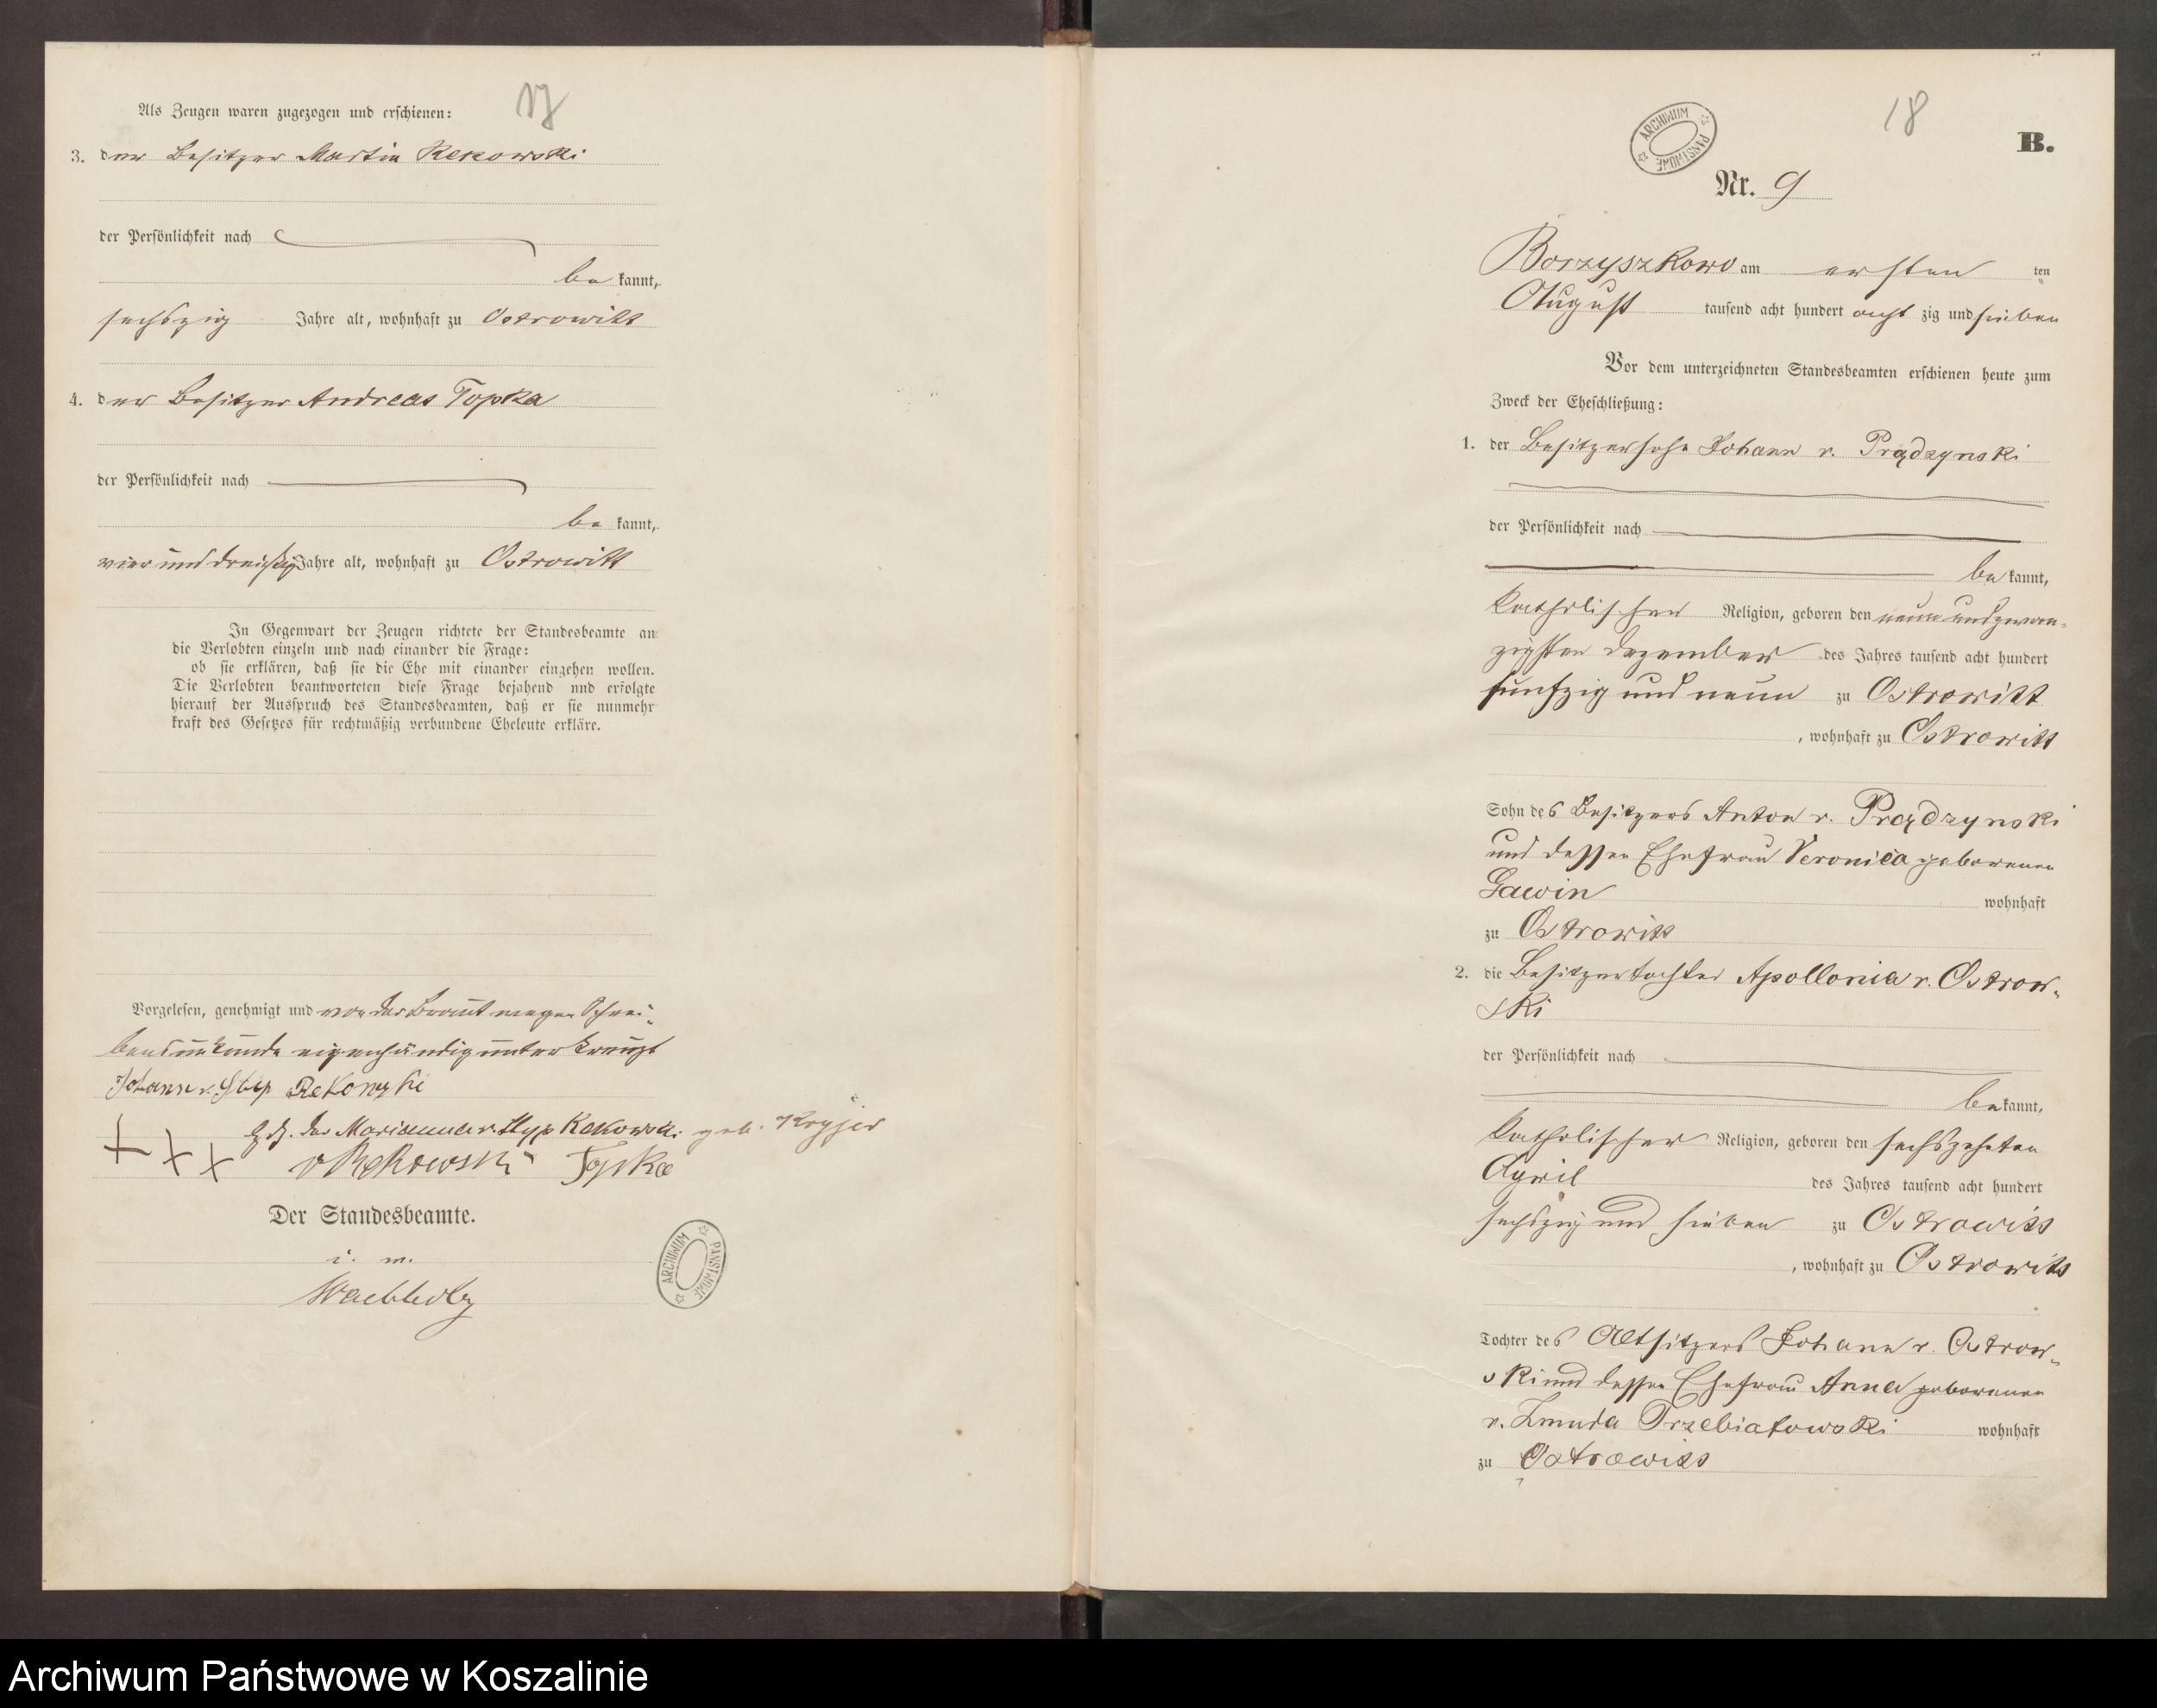 17
Als Zeugen waren zugezogen und erschienen:
3. der Besitzer Martin Rekowski
der Persönlichkeit nach
be kannt,
sechszig Jahre alt, wohnhaft zu Ostrowitt
4. der Besitzer Andreas Topka
der Persönlichkeit nach
be kannt,
vier und dreißig Jahre alt, wohnhaft zu Ostrowitt
In Gegenwart der Zeugen richtete der Standesbeamte an
die Verlobten einzeln und nach einander die Frage:
ob sie erklären, daß sie die Ehe mit einander eingehen wollen.
Die Verlobten beantworteten diese Frage bejahend und erfolgte
hierauf der Ausspruch des Standesbeamten, daß er sie nunmehr
kraft des Gesetzes für rechtmäßig verbundene Eheleute erkläre.
Vorgelesen, genehmigt und von der Braut wegen Schrei-
bensunkunde eigenhändig unterkreuzt
Johann v. Styp Rekowski
+ + + der Marianna v. Styp Rekowski geb.
v Rekowski Topka
Der Standesbeamte.
ARCHIWUM PAŃSTWOWE
18
B.
ARCHIWUM PAŃSTWOWE
Nr. 9
Borzyszkowo am ersten ten
August tausend acht hundert acht zig und sieben
Vor dem unterzeichneten Standesbeamten erschienen heute zum
Zweck der Eheschließung:
1. der Besitzersohn Johann v. Prądzynski
der Persönlichkeit nach
be kannt,
katholischer Religion, geboren den neun und zwan-
zigsten Dezember des Jahres tausend acht hundert
fünfzig und neun zu Ostrowitt
, wohnhaft zu Ostrowitt
Sohn des Besitzers Anton v. Prądzynski
und dessen Ehefrau Veronica geborenen
Gawin wohnhaft
zu Ostrowitt
2. die Besitzertochter Apollonia v. Ostrow-
ski
der Persönlichkeit nach
be kannt,
katholischer Religion, geboren den sechszehnten
April des Jahres tausend acht hundert
sechszig und sieben zu Ostrowitt
, wohnhaft zu Ostrowitt
Tochter des Altsitzers Johann v. Ostrow-
ski und dessen Ehefrau Anna geborenen
v. Zmuda Trzebiatowski wohnhaft
zu Ostrowitt
Archiwum Państwowe w Koszalinie